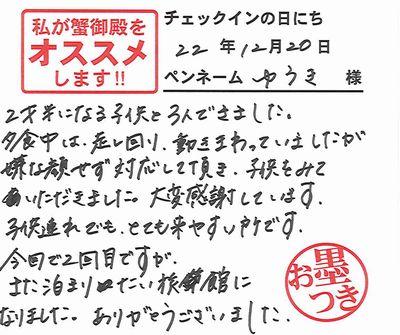 私が蟹御殿を
オススメ
します!!
チェックインの日にち
22年12月20日
ペンネーム ゆうき 様
2才半になる子供と3人できました。
夕食中は、走り回り、動きまわっていましたが
嫌な顔せず対応して頂き、子供をみて
いただきました。大変感謝しています。
子供連れでも、とても来やすい所です。
今回で2回目ですが、
また泊まりたい旅館に
なりました。ありがとうございました。
お墨つき